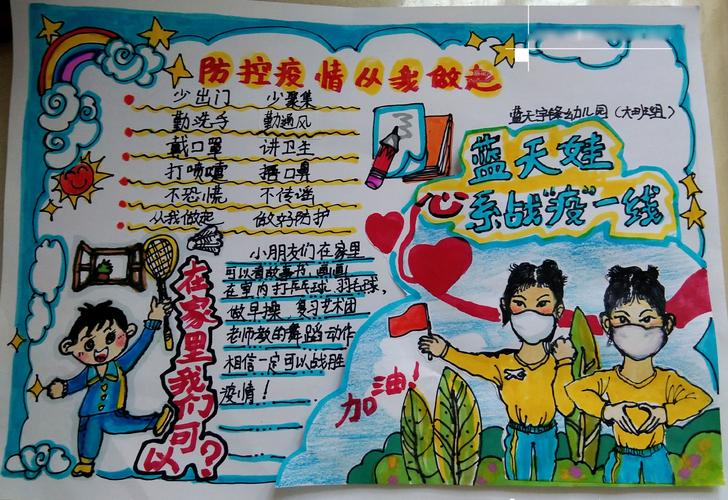 防控疫情从我做起
少出门 少聚集
勤洗手 勤通风
戴口罩 讲卫生
打喷嚏 捂口鼻
不恐慌 不传谣
从我做起 做好防护
蓝天宇锋幼儿园(大班组)
蓝天娃
心系战“疫”一线
在家里我们可以?
小朋友们在家里
可以看故事书,画画,
在室内打乒乓球,羽毛球,
做早操,复习艺术团
老师教的舞蹈动作
相信一定可以战胜
疫情!
加油!